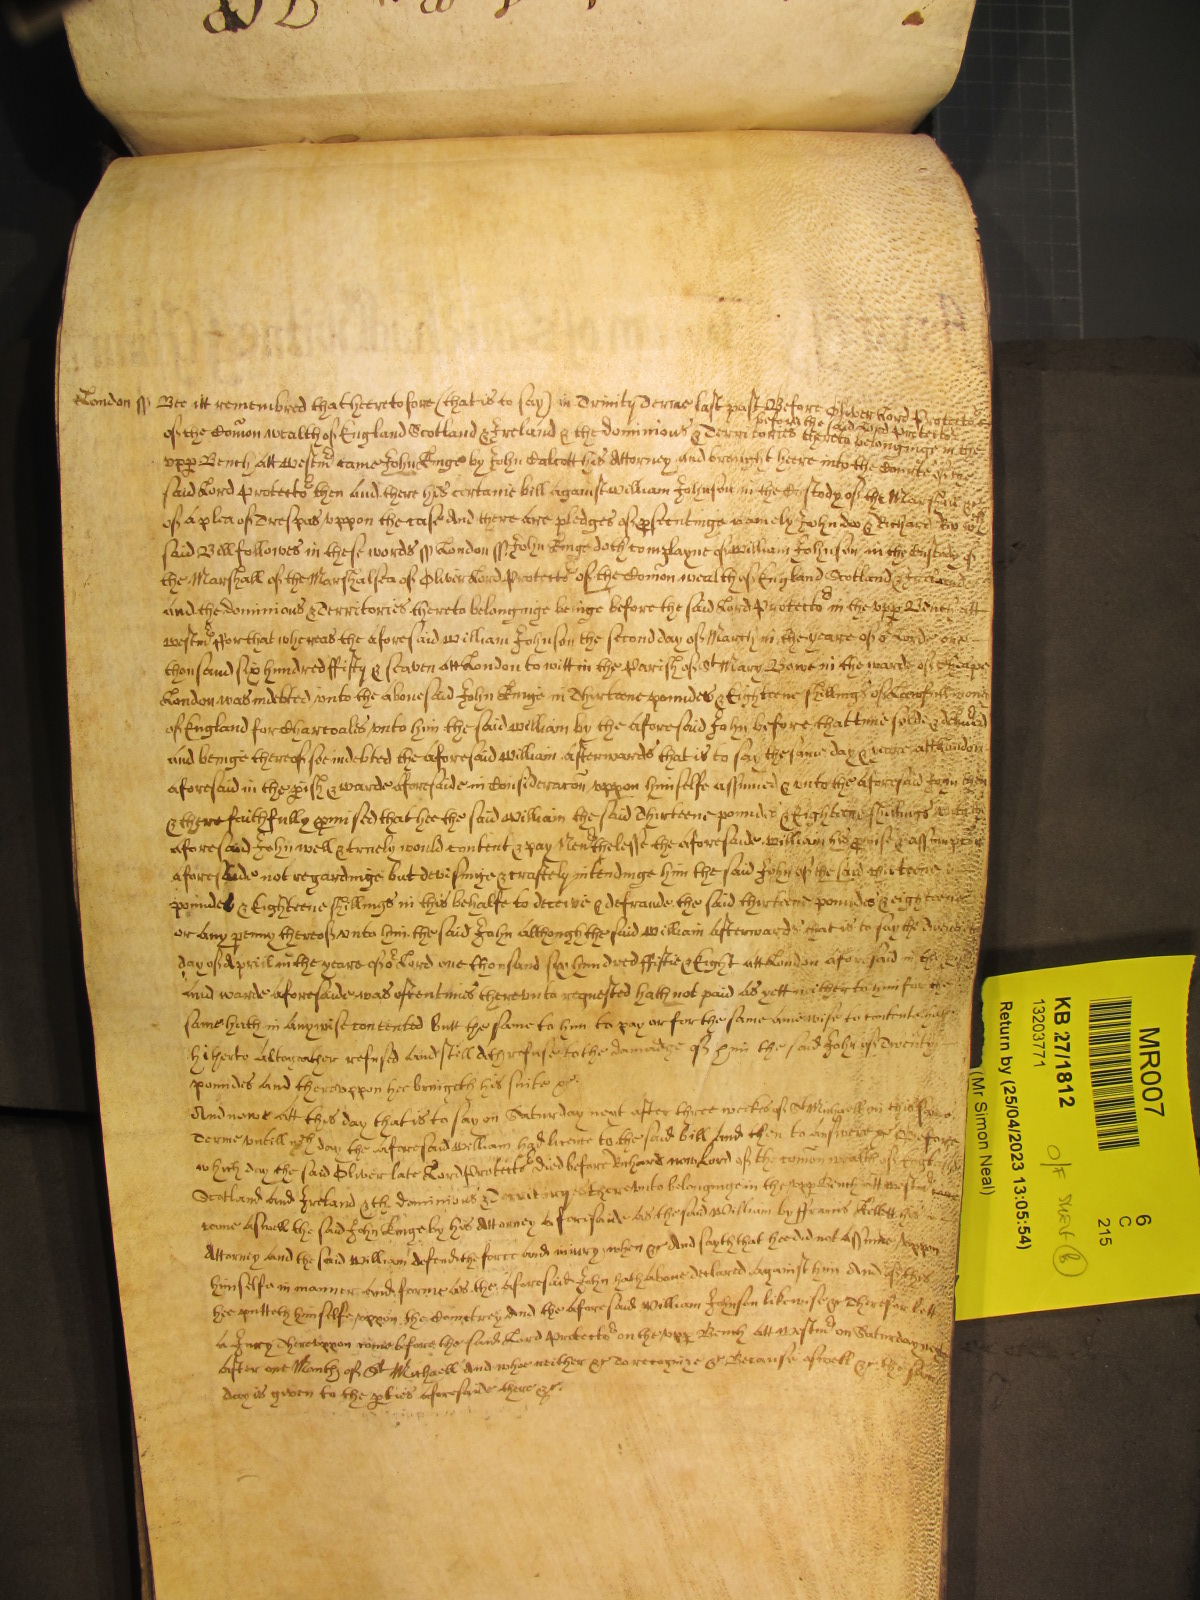 London ss Bee itt remembred that heeretofore (that is to say) in Trinity Terme last past Before Oliver Lord Protector
before the said Lord Protector
of the Comon wealth of England Scotland & Ireland & the dominions & Territories thereto belonginge in the
upp Bench att Westmr came John Kinge by John Calcott his Attorney and brought heere into the Courte of the
said Lord Protector then and there his certaine bill against William Johnson in the Custody of the Marshall &c
of a plea of Trespas uppon the case And there are pledges of psecutinge namely John doo & Richard Roo wch
said Bill followes in these words ss London ss John Kinge doth complayne of William Johnson in the Custody of
the Marshall of the Marshalsea of Oliver Lord Protector of the Comon wealth of England Scotland & Ireland
and the dominions & Territories thereto belonginge beinge before the said Lord Protector in the upp Bench att
Westmr For that whereas the aforesaid William Johnson the second day of March in the yeare of or Lorde one
thousand six hundred fifty & seaven att London to witt in the Parish of St Mary Bowe in the warde of Cheape
London was indebted unto the abovesaid John Kinge in Thirteene poundes & Eighteene shillings of Lawfull mony
of England for Charcoales unto him the said William by the aforesaid John before that time solde & delivered
And beinge thereof soe indebted the aforesaid William afterwards that is to say the same day & yeare att London
aforesaid in the pish & warde aforesaide in Consideracon uppon himselfe assumed & unto the aforesaid John then
& there faithfully pmised that hee the said William the said Thirteene poundes & Eighteene shillings unto the
aforesaid John well & truely would content & pay Neverthelesse the aforesaide William his pmise & assumpcon
aforesaide not regardinge but devisinge & craftely intendinge him the said John of the said thirteene
poundes & Eighteene shillings in this behalfe to deceive & defraude the said thirteene poundes & eighteene
or any penny thereof unto him the said John although the said William afterwards that is to say the
day of Aprill in the yeare of or Lord one thousand six hundred fiftie & Eight att London aforesaid in the
And warde aforesaide was oftentimes thereunto requested hath not paid as yett neither to him for the
same hath in anywise contented Butt the same to him to pay or for the same anie wise to content
hitherto altogeather refused and still doth refuse to the damadge of him the said John of Twenty
poundes and thereuppon hee bringeth his suite &c.
And nowe att this day that is to say on Saturday next after three weekes of St Michaell in this same
Terme untill wch day the aforesaid William had licence to the said bill And then to answere &c Before
which day the said Oliver late Lord Protector died before Richard now Lord of the comon wealth of England
Scotland and Ireland & the dominions & Territoryes thereunto belonginge in the upp Bench att Westmr
came aswell the said John Kinge by his Attorney aforesaide As the said William by Francis Kellett his
Attorney And the said William defends the force and iniury when &c And sayth that hee did not Assume uppon
himselfe in manner and forme as the aforesaide John hath above declared against him And of this
hee putteth himselfe uppon the Countrey And the aforesaid William Johnson likewise &c Therefor lett
a Jury Thereuppon come before the said Lord Protector on the upp Bench att Westmr on Saturday next
After one Month of St Michaell And whoe neither &c To recognize &c Because aswell &c the same
day is given to the pties aforesaide there &c.
MR007
6
C
215
KB 27/1812
13203771
O/F
Return by (25/04/2023 13:05:54)
(Mr Simon Neal)